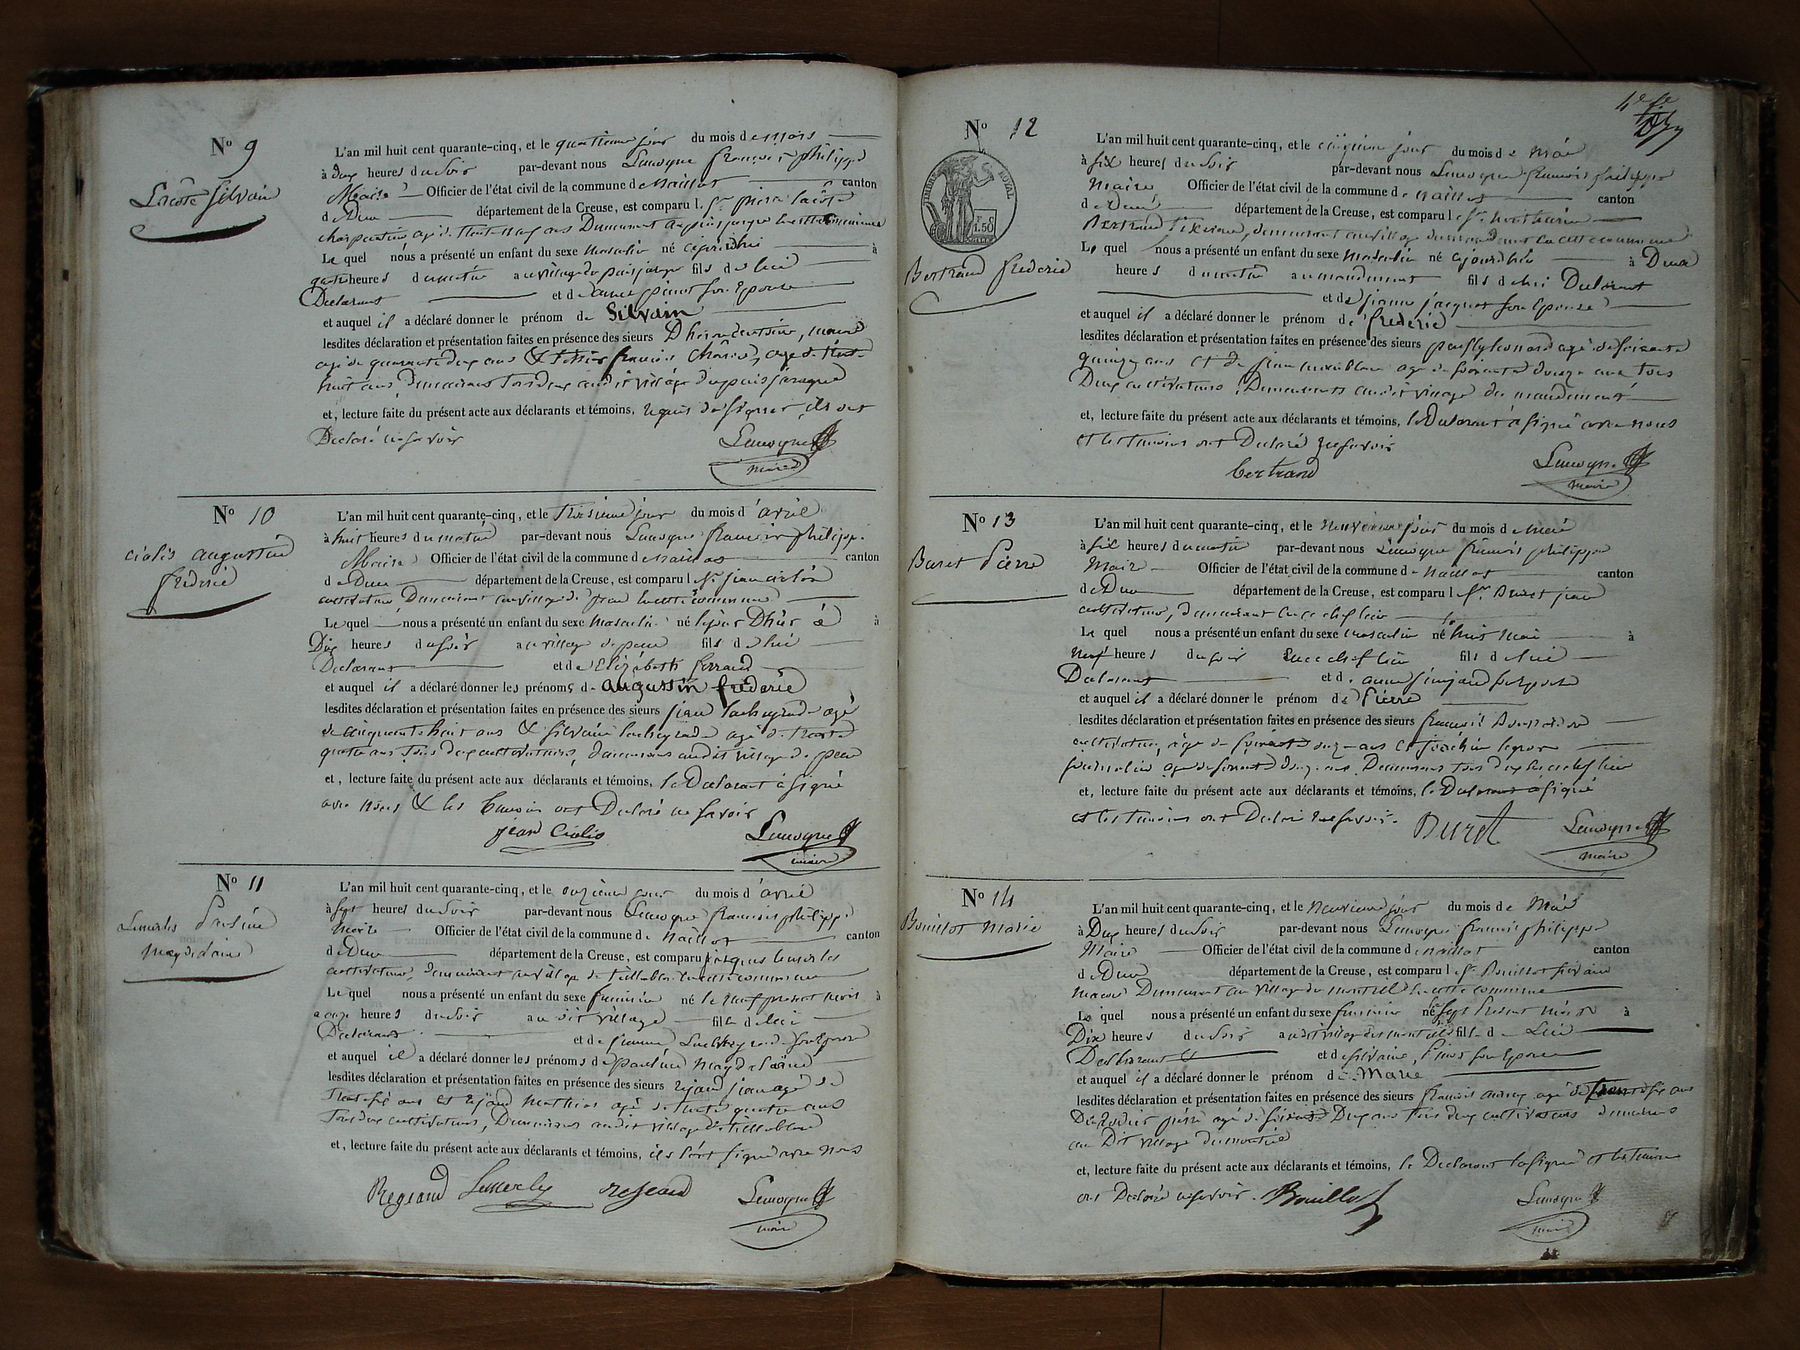 N.º 9
Lacôte Silvain
L'an mil huit cent quarante-cinq, et le quatrieme jour du mois de Mars
à deux heures du soir par-devant nous Lemoyne françois philippe
Maire Officier de l'état civil de la commune de Naillat canton
de Dun département de la Creuse, est comparu l. Sr. pierre lacôte
charpentier, agé de trente neuf ans Demeurant au puisjarge en cette commune
Le quel nous a présenté un enfant du sexe masculin né aujourdhui à
quatre heures du matin au village de puisjarge fils de lui
Declarant et de anne pinot son Epouse
et auquel il a déclaré donner le prénom de Silvain
lesdites déclaration et présentation faites en présence des sieurs
agé de quarante deux ans & françois Charles, agé de trente
huit ans, demeurant tous deux audit village
et, lecture faite du présent acte aux déclarants et témoins, requis de signer ils ont
Declaré ne savoir Lemoyne
maire
N.º 10
ciolis augustin
frederic
L'an mil huit cent quarante-cinq, et le troisieme jour du mois d'avril
à huit heures du matin par-devant nous Lemoyne françois philippe
Maire Officier de l'état civil de la commune de naillat canton
de Dun département de la Creuse, est comparu l. Sr. jean ciolis
cultivateur, Demeurant au village de peau en cette commune
Le quel nous a présenté un enfant du sexe masculin né le jour D'hier à
Dix heures du soir au village de peau fils de lui
Declarant et de Elizabeth ferraud
et auquel il a déclaré donner les prénoms de augustin frederic
lesdites déclaration et présentation faites en présence des sieurs jean agé
de cinquante huit ans & silvain agé de trente
quatre ans tous deux cultivateurs, demeurans audit village de peau
et, lecture faite du présent acte aux déclarants et témoins, le Declarant à signé
avec nous & les temoins ont Declaré ne savoir
jean Ciolis Lemoyne
maire
N.º 11
Lemerles Pauline
magdelaine
L'an mil huit cent quarante-cinq, et le onzieme jour du mois d'avril
à sept heures du soir par-devant nous Lemoyne francois philippe
Maire Officier de l'état civil de la commune de Naillat canton
de Dun département de la Creuse, est comparu jacques lemerles
cultivateur, demeurant au village de en cette commune
Le quel nous a présenté un enfant du sexe feminin né le neuf present mois à
onze heures du soir au dit village fille de lui
Declarant et de jeanne son Epouse
et auquel il a déclaré donner les prénoms de pauline magdelaine
lesdites déclaration et présentation faites en présence des sieurs rejaud jean agé de
trente six ans et rejaud mathieu agé de trente quatre ans
Tous deux cultivateurs, Demeurans audit village
et, lecture faite du présent acte aux déclarants et témoins, ils l'ont signé avec nous
Regeaud Lemerle rejeaud Lemoyne
maire
N.º 12
TIMBRE ROYAL
1.50
Bertrand frederic
L'an mil huit cent quarante-cinq, et le cinquieme jour du mois de Mai
à six heures du soir par-devant nous Lemoyne francois philippe
Maire Officier de l'état civil de la commune de naillat canton
de Dun département de la Creuse, est comparu le Sr.
Bertrand demeurant au village du mandement en cette commune
Le quel nous a présenté un enfant du sexe masculin né aujourdhui à Deux
heures du matin au mandement fils de lui Declarant
et de jeanne jacquet son Epouse
et auquel il a déclaré donner le prénom de frederic
lesdites déclaration et présentation faites en présence des sieurs leonard agé de soixante
quinze ans et de jean agé de soixante ans tous
Deux cultivateurs, Demeurants audit village du mandement
et, lecture faite du présent acte aux déclarants et témoins, le Declarant à signé avec nous
et les temoins ont Declaré ne savoir
bertrand Lemoyne
maire
N.º 13
Buret Pierre
L'an mil huit cent quarante-cinq, et le neuvieme jour du mois de Mai
à six heures du matin par-devant nous Lemoyne françois philippe
Maire Officier de l'état civil de la commune de Naillat canton
de Dun département de la Creuse, est comparu l. Sr. Buret jean
cultivateur, demeurant en ce chef lieu
Le quel nous a présenté un enfant du sexe masculin né le huit mai à
neuf heures du soir en ce chef lieu fils de lui
Declarant et de anne son Epouse
et auquel il a déclaré donner le prénom de Pierre
lesdites déclaration et présentation faites en présence des sieurs francois
cultivateur, agé de soixante onze ans et joachim legros
journalier agé de soixante ans, Demeurans tous deux en ce chef lieu
et, lecture faite du présent acte aux déclarants et témoins, le Declarant à signé
et les temoins ont Declaré ne savoir. Buret Lemoyne
maire
N.º 14
Bouillot Marie
L'an mil huit cent quarante-cinq, et le Neuvieme jour du mois de Mai
à Deux heures du soir par-devant nous Lemoyne francois philippe
Maire Officier de l'état civil de la commune de naillat canton
de Dun département de la Creuse, est comparu l. Sr. Bouillot silvain
macon Demeurant au village du monteil en cette commune
Le quel nous a présenté un enfant du sexe feminin né le sept Present mois à
Dix heures du soir audit village du monteil fille de Lui
Declarant et de silvaine Pinot son Epouse
et auquel il a déclaré donner le prénom de Marie
lesdites déclaration et présentation faites en présence des sieurs francois agé de ans
pierre agé de soixante Deux ans tous deux cultivateurs demeurans
au Dit village du monteil
et, lecture faite du présent acte aux déclarants et témoins, le Declarant la signé et les temoins
ont Declaré ne savoir. Bouillot Lemoyne
maire